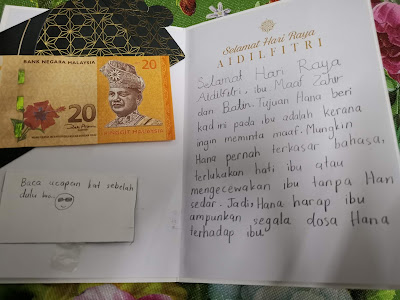 BANK NEGARA MALAYSIA
20
20
RINGGIT MALAYSIA
Baca ucapan kat sebelah
dulu bu..
Selamat Hari Raya
AIDILFITRI
Selamat Hari Raya
Aidilfitri, ibu. Maaf Zahir
dan Batin. Tujuan Hana beri
kad ini pada ibu adalah kerana
ingin meminta maaf. Mungkin
Hana pernah terkasar bahasa,
terlukakan hati ibu atau
mengecewakan ibu tanpa Han
sedar. Jadi, Hana harap ibu
ampunkan segala dosa Hana
terhadap ibu